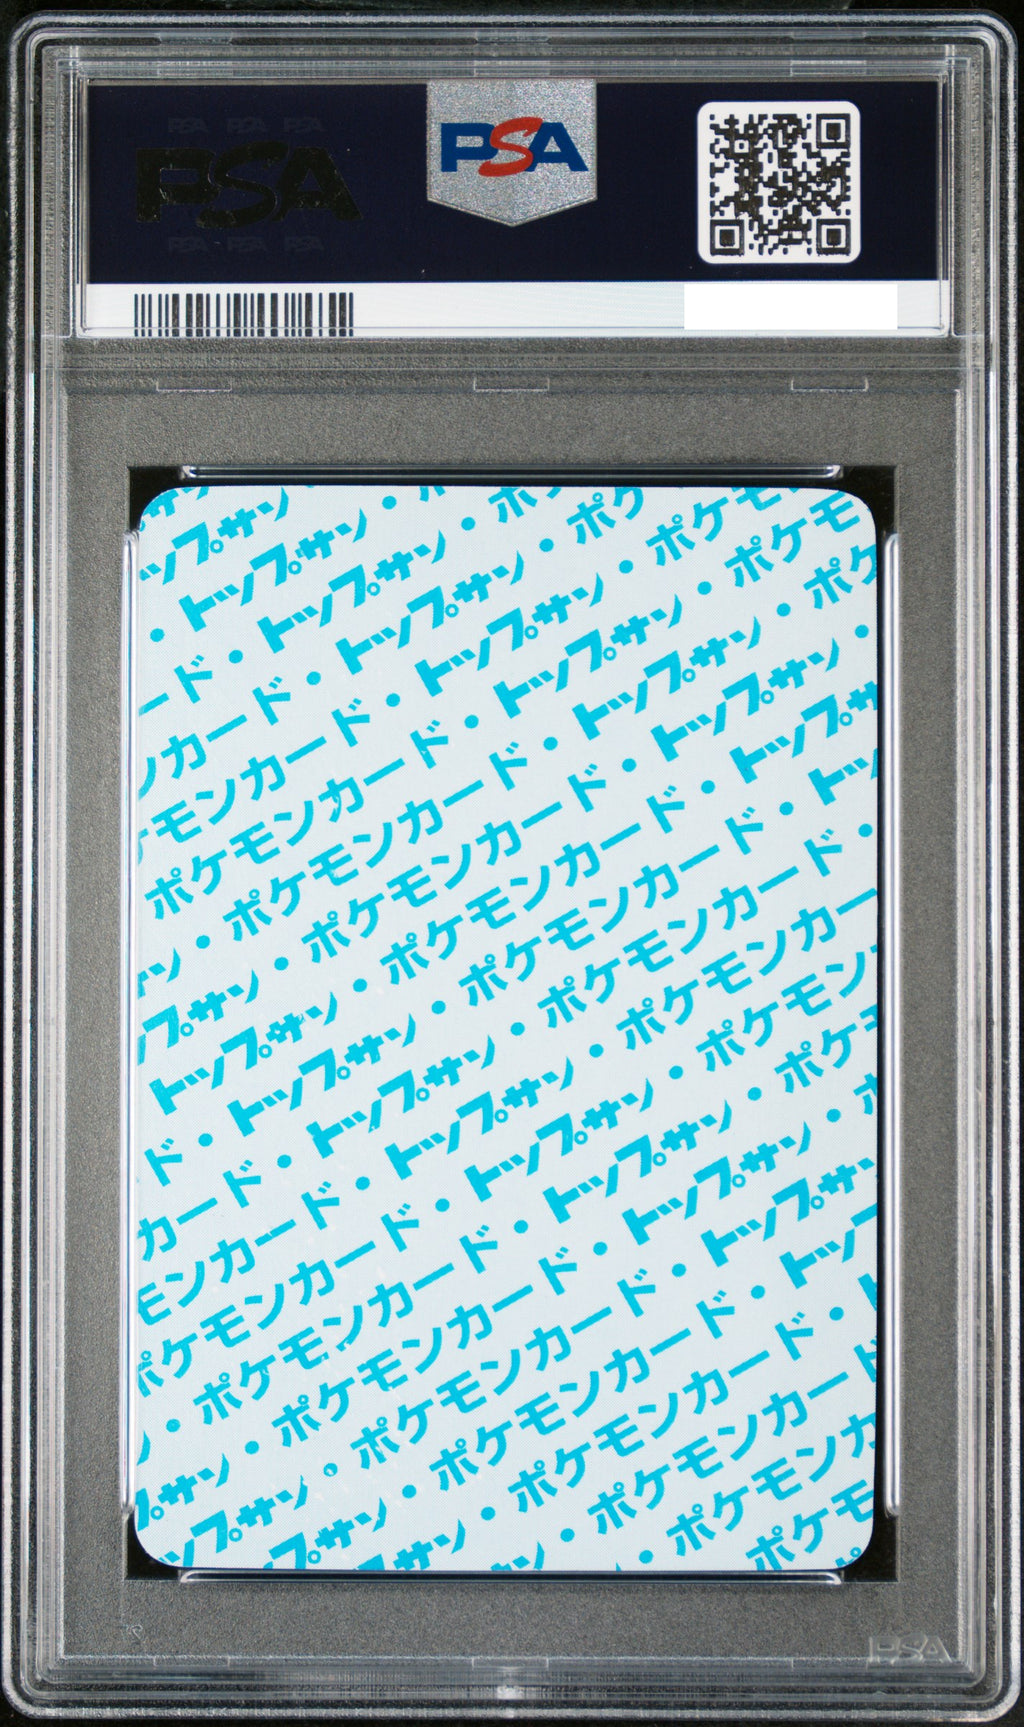 PSA PSA PSA
PSA
PSA PSA PSA
PSA
ップサン・
・トップサン・
ード・トップサン・ポ
ンカード・トップサン・ポケ
モンカード・トップサン・ポケモ
ポケモンカード・トップサン・ポケモ
ン・ポケモンカード・トップサン・ポケ
プサン・ポケモンカード・トップサン・
トップサン・ポケモンカード・トップサ
ド・トップサン・ポケモンカード・トッ
カード・トップサン・ポケモンカード・
モンカード・トップサン・ポケモンカー
ポケモンカード・トップサン・ポケモン
・ポケモンカード・トップサン・ポケ
サン・ポケモンカード・トップサン・
プサン・ポケモンカード・トップサ
プサン・ポケモンカード・トッ
サン・ポケモンカード・
ン・ポケモンカード
・ポケモンカ
ポケモ
PSA